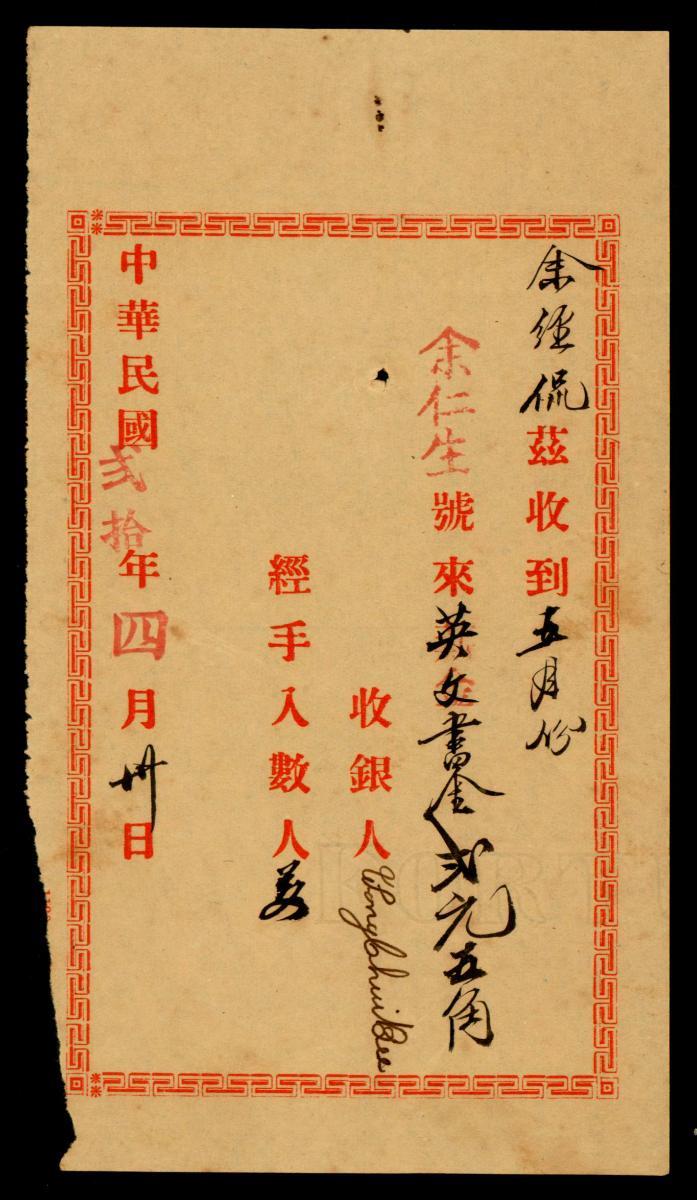 余經侃茲收到五月份
余仁生號來英文書金弍元五角
收銀人 Wong Chui Bee
經手入數人
中華民國弍拾年四月卅日